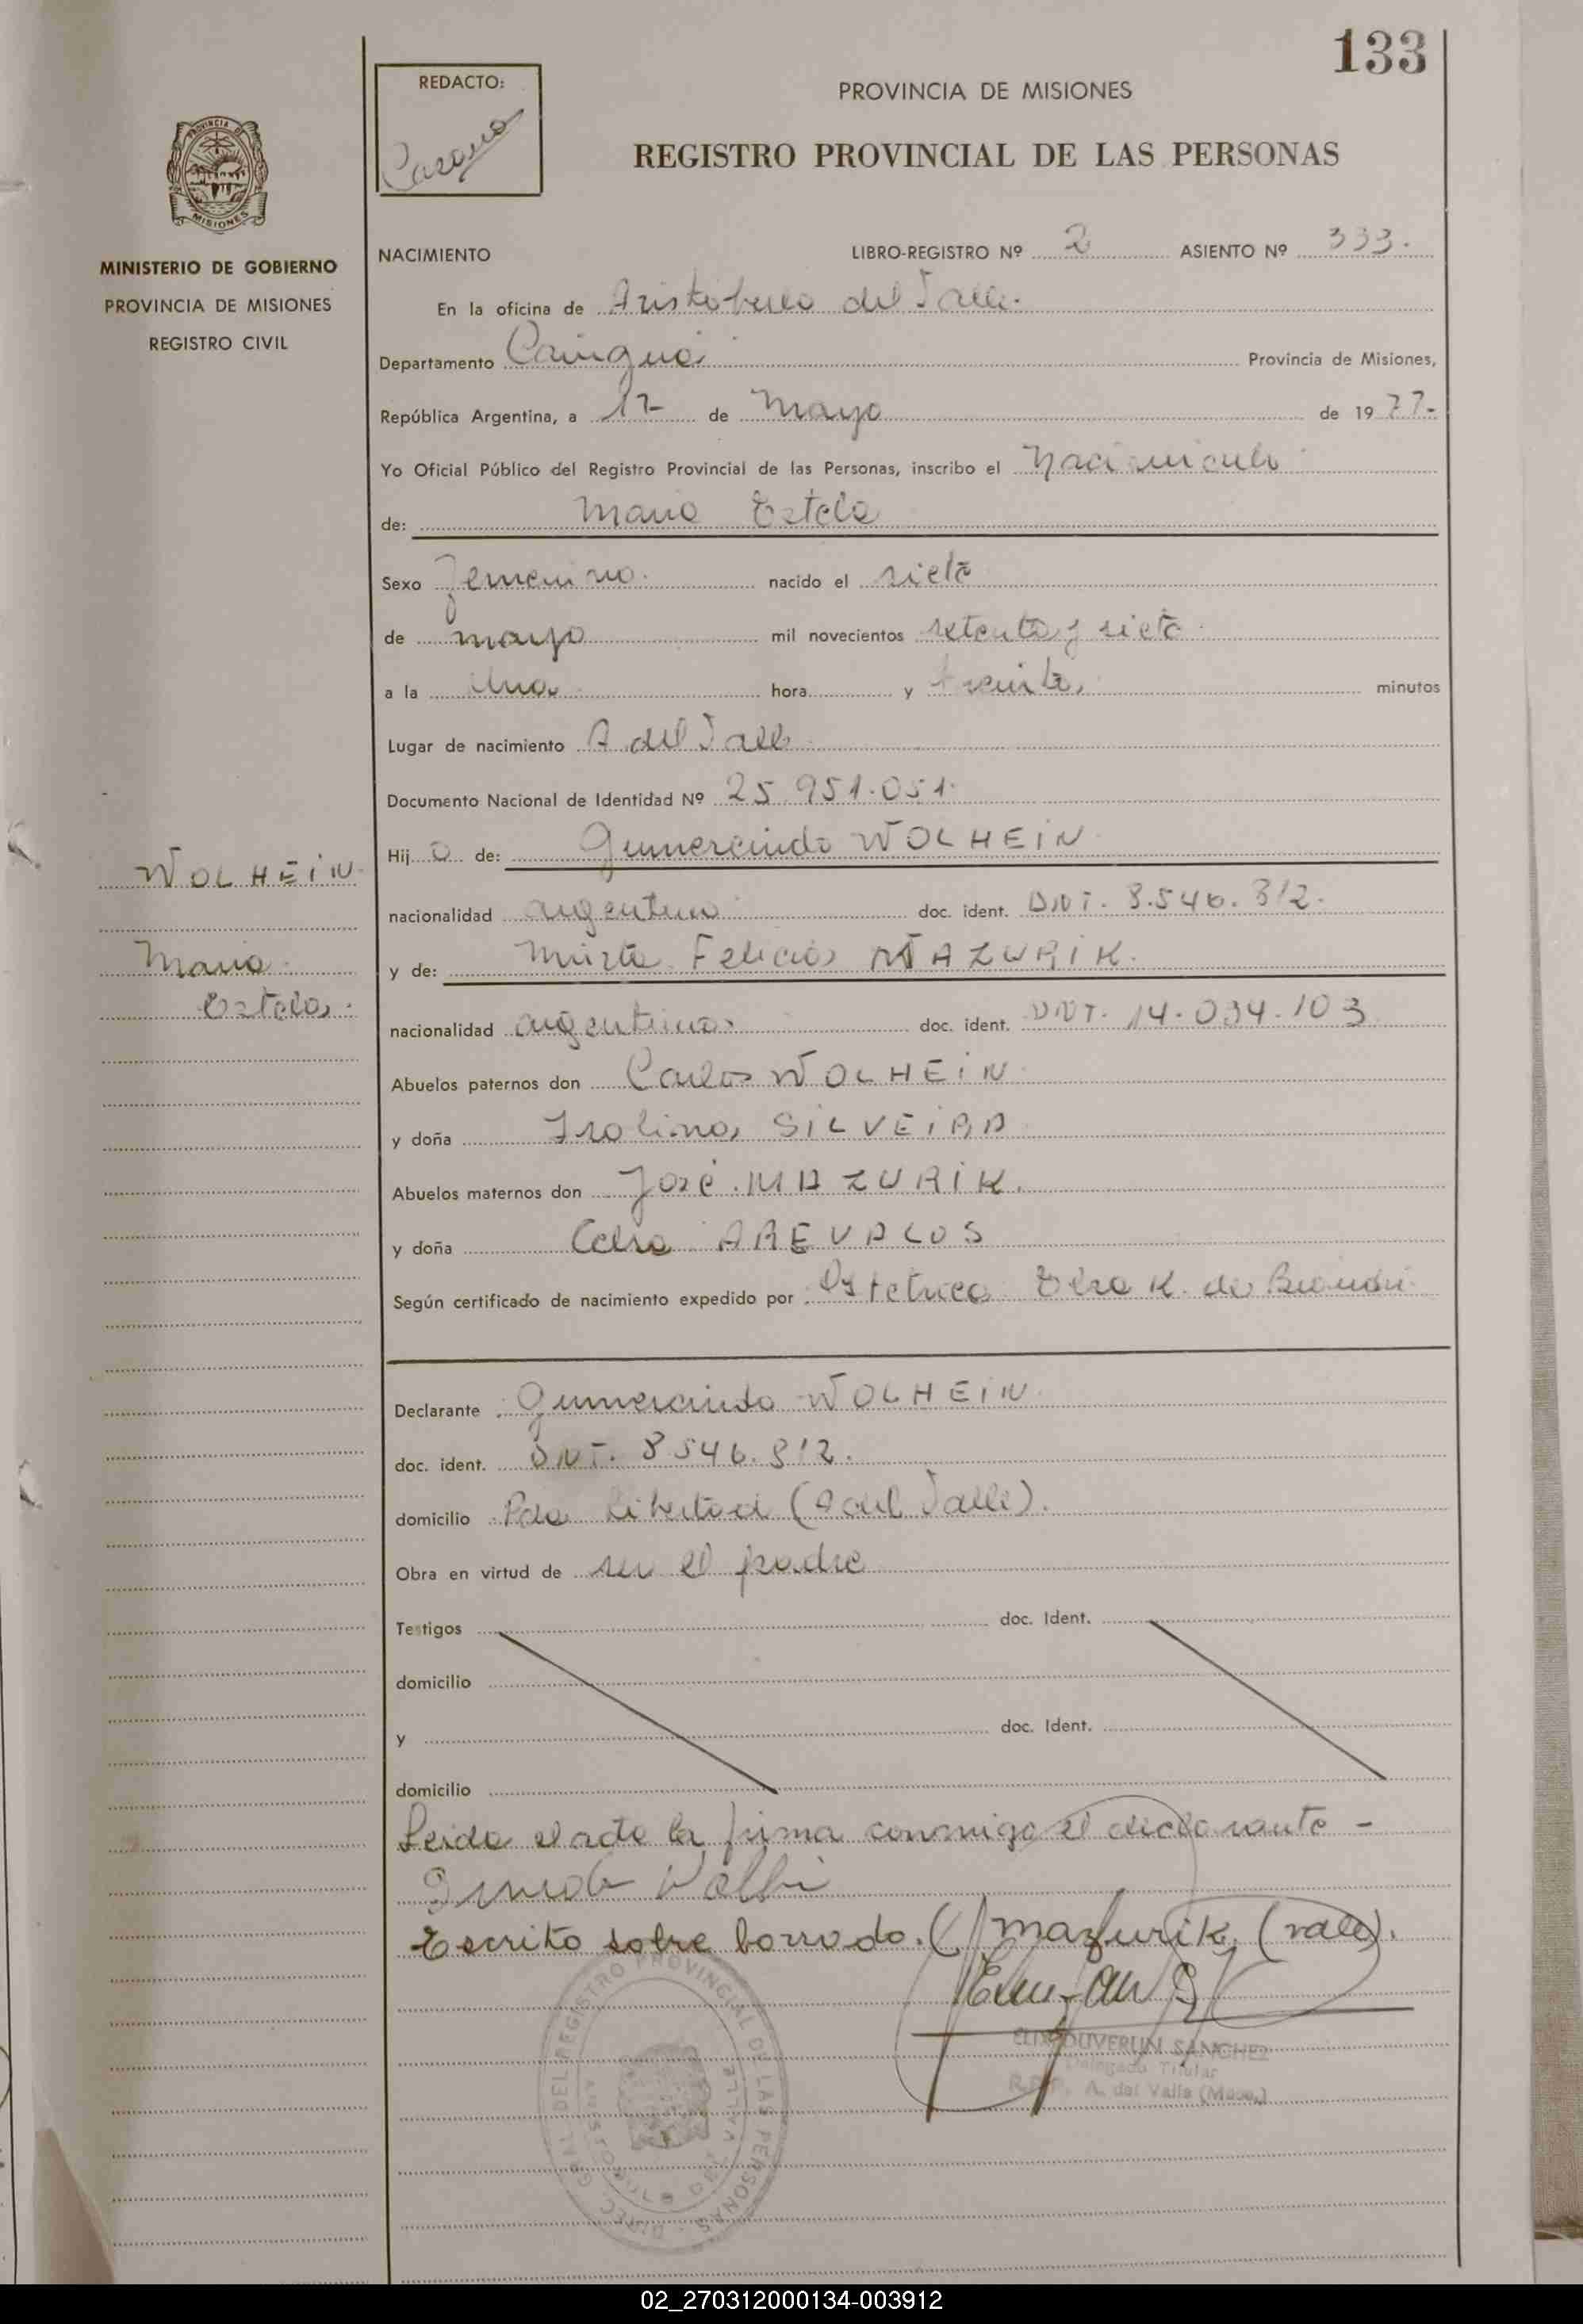 133
REDACTO:
PROVINCIA DE MISIONES
REGISTRO PROVINCIAL DE LAS PERSONAS
MINISTERIO DE GOBIERNO
PROVINCIA DE MISIONES
REGISTRO CIVIL
NACIMIENTO LIBRO-REGISTRO Nº 2 ASIENTO Nº 333.
En la oficina de Aristobulo del Valle.
Departamento Cainguas Provincia de Misiones,
República Argentina, a 17 de Mayo de 1977-
Yo Oficial Público del Registro Provincial de las Personas, inscribo el Nacimiento
de: Maria Estela
Sexo femenino. nacido el siete
de mayo mil novecientos setenta y siete.
a la una hora y treinta minutos
Lugar de nacimiento A del Valle
Documento Nacional de Identidad Nº 25.951.051.
Hija de: Gumercindo WOLHEiN
nacionalidad argentino doc. ident. DNI. 8.546.812.
y de: Mirta Felicia MAZURiK.
nacionalidad argentina doc. ident. DNI. 14.034.103
Abuelos paternos don Carlos WOLHEiN
y doña Isolina SiLVEiRA
Abuelos maternos don José MAZURiK.
y doña Celsa AREVALOS
Según certificado de nacimiento expedido por Obstetrica Elsa K. de
WOLHEiN
Maria
Estela.
Declarante Gumercindo WOLHEiN
doc. ident. DNI. 8546.812.
domicilio Pdo Libertad (A del Valle).
Obra en virtud de ser el padre
Testigos doc. Ident.
domicilio
y doc. Ident.
domicilio
Leida el acta la firma conmigo el declarante -
Escrito sobre borrado. Mazurik (vale).
SANCHEZ
Delegado Titular
A. del Valle
DIREC. GRAL. DEL REGISTRO PROVINCIAL DE LAS PERSONAS
ARISTOBULO DEL VALLE
02_270312000134-003912